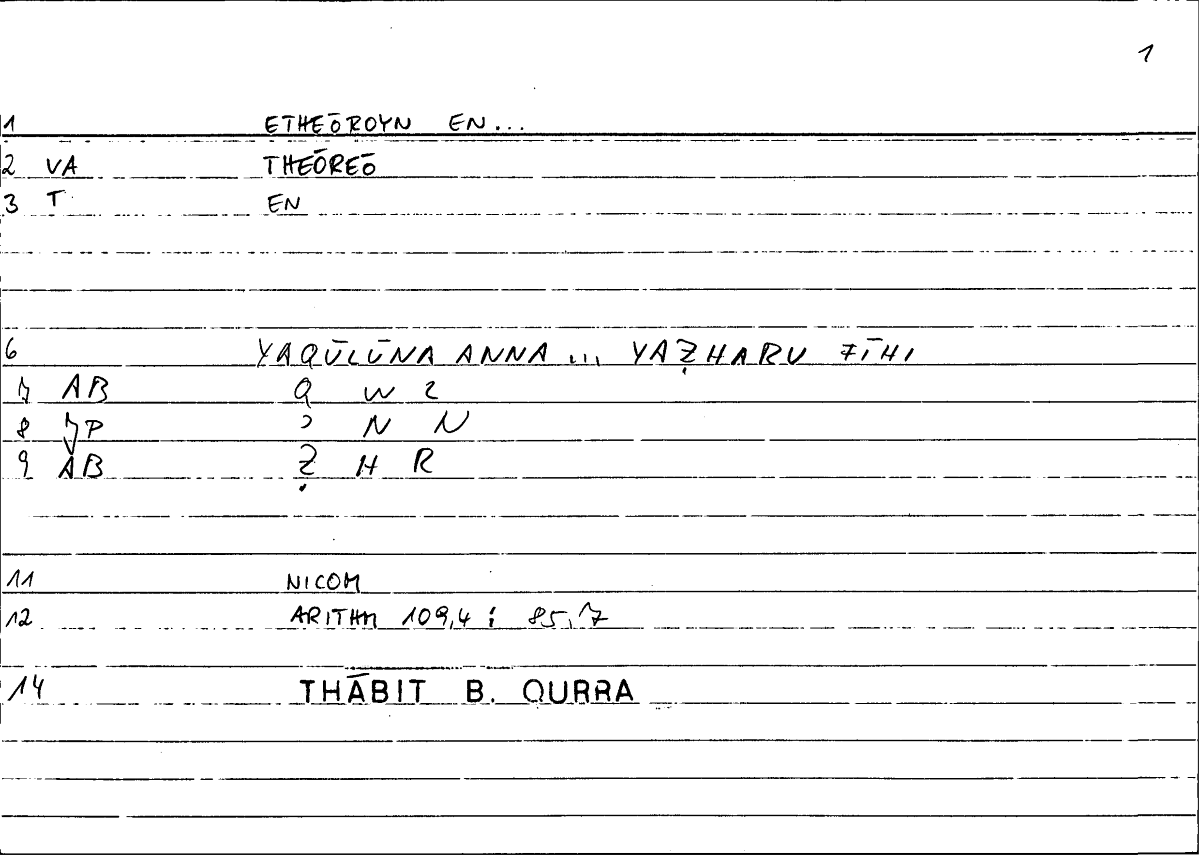 1
1 ETHEŌROYN EN...
2 VA THEŌREŌ
3 T EN
6 YAQŪLŪNA ANNA ... YAẒHARU FĪHI
7 AB Q W L
8 JP ʾ N N
9 AB Ẓ H R
11 NICOM
12 ARITHM 109,4 : 85,7
14 THĀBIT B. QURRA